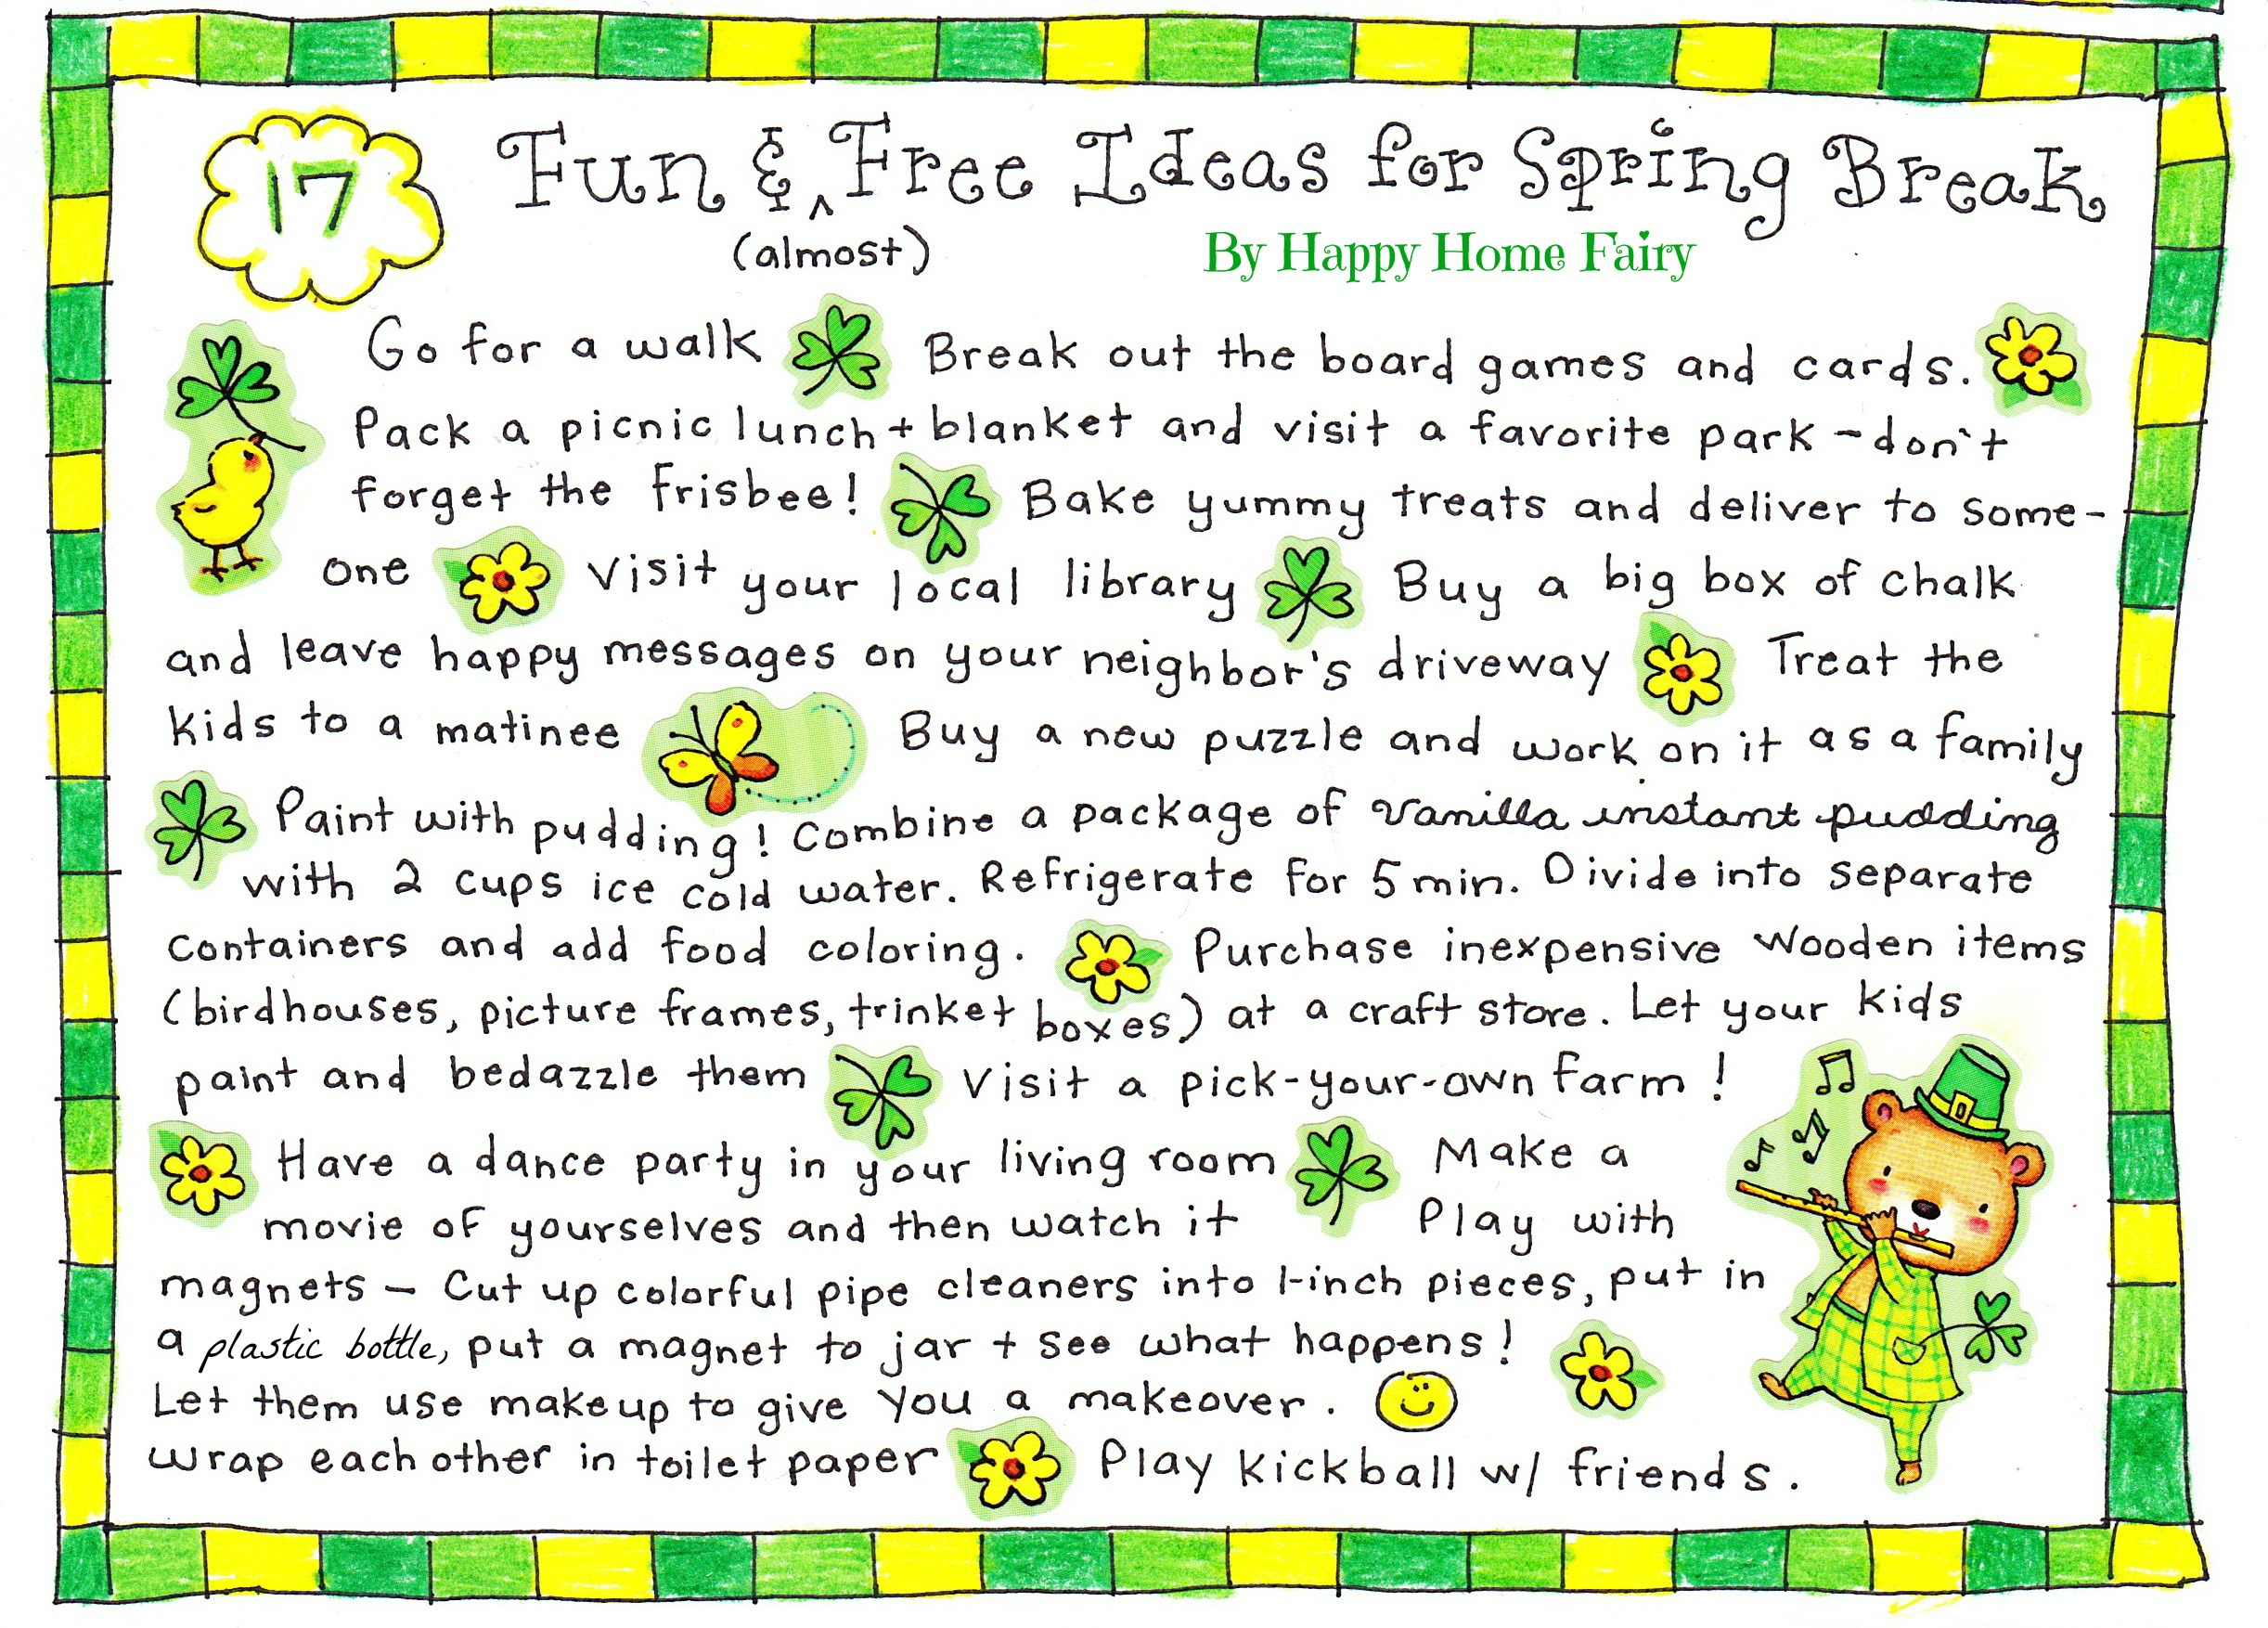 17 Fun & Free Ideas for Spring Break
(almost)
By Happy Home Fairy
Go for a walk Break out the board games and cards.
Pack a picnic lunch + blanket and visit a favorite park - don't
forget the frisbee! Bake yummy treats and deliver to some-
one Visit your local library Buy a big box of chalk
and leave happy messages on your neighbor's driveway Treat the
kids to a matinee Buy a new puzzle and work on it as a family
Paint with pudding! Combine a package of Vanilla instant pudding
with 2 cups ice cold water. Refrigerate for 5 min. Divide into separate
containers and add food coloring. Purchase inexpensive wooden items
(birdhouses, picture frames, trinket boxes) at a craft store. Let your kids
paint and bedazzle them Visit a pick-your-own farm!
Have a dance party in your living room Make a
movie of yourselves and then watch it Play with
magnets - Cut up colorful pipe cleaners into 1-inch pieces, put in
a plastic bottle, put a magnet to jar + see what happens!
Let them use makeup to give you a makeover.
wrap each other in toilet paper Play kickball w/ friends.